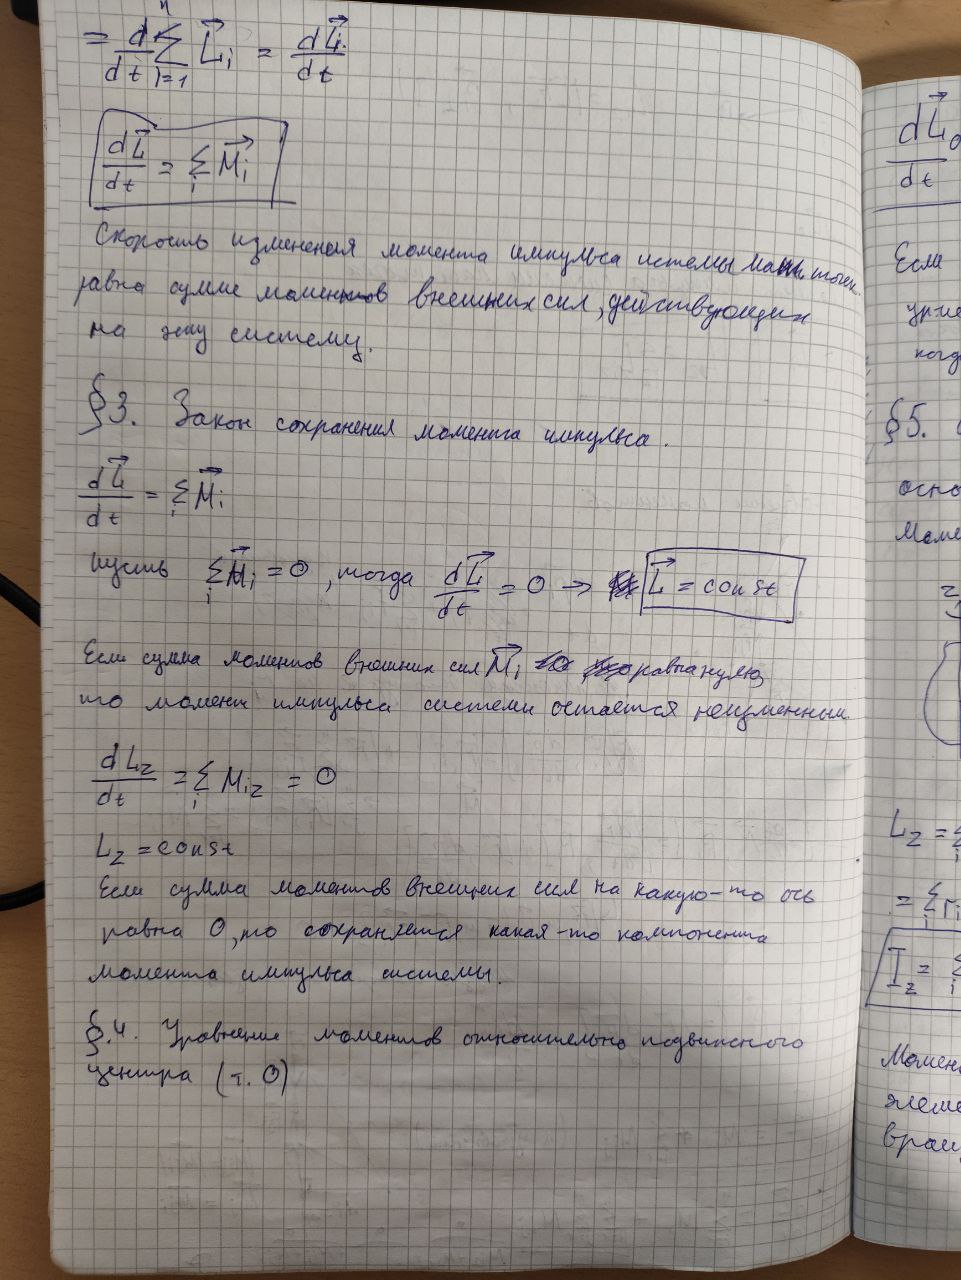 = d/dt Σ_{i=1}^{n} L⃗_i = dL⃗/dt
dL⃗/dt = Σ_i M⃗_i
Скорость изменения момента импульса истемы мат. точек
равна сумме моментов внешних сил, действующих
на эту систему.
§3. Закон сохранения момента импульса.
dL⃗/dt = Σ_i M⃗_i
пусть Σ_i M⃗_i = 0, тогда dL⃗/dt = 0 → L⃗ = const
Если сумма моментов внешних сил M⃗_i равна нулю,
то момент импульса системы остаётся неизменным.
dL_z/dt = Σ_i M_iz = 0
L_z = const
Если сумма моментов внешних сил на какую-то ось
равна 0, то сохраняется какая-то компонента
момента импульса системы.
§.4. Уравнение моментов относительно подвижного
центра (т. О)
dL⃗_0/dt
Если
когд
§5.
осно
Моме
L_z = Σ_i
= Σ_i r_i
I_z = Σ_i
Момен
элеме
вращ